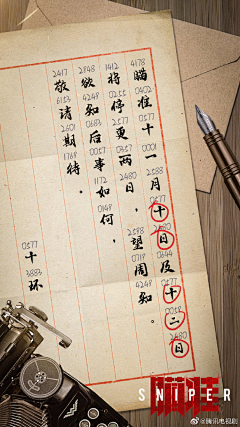 瞄准十一月十日及十二日
将停更两日，望周知。
欲知后事如何，
敬请期待。
十环
瞄准
SNIPER
@腾讯电视剧